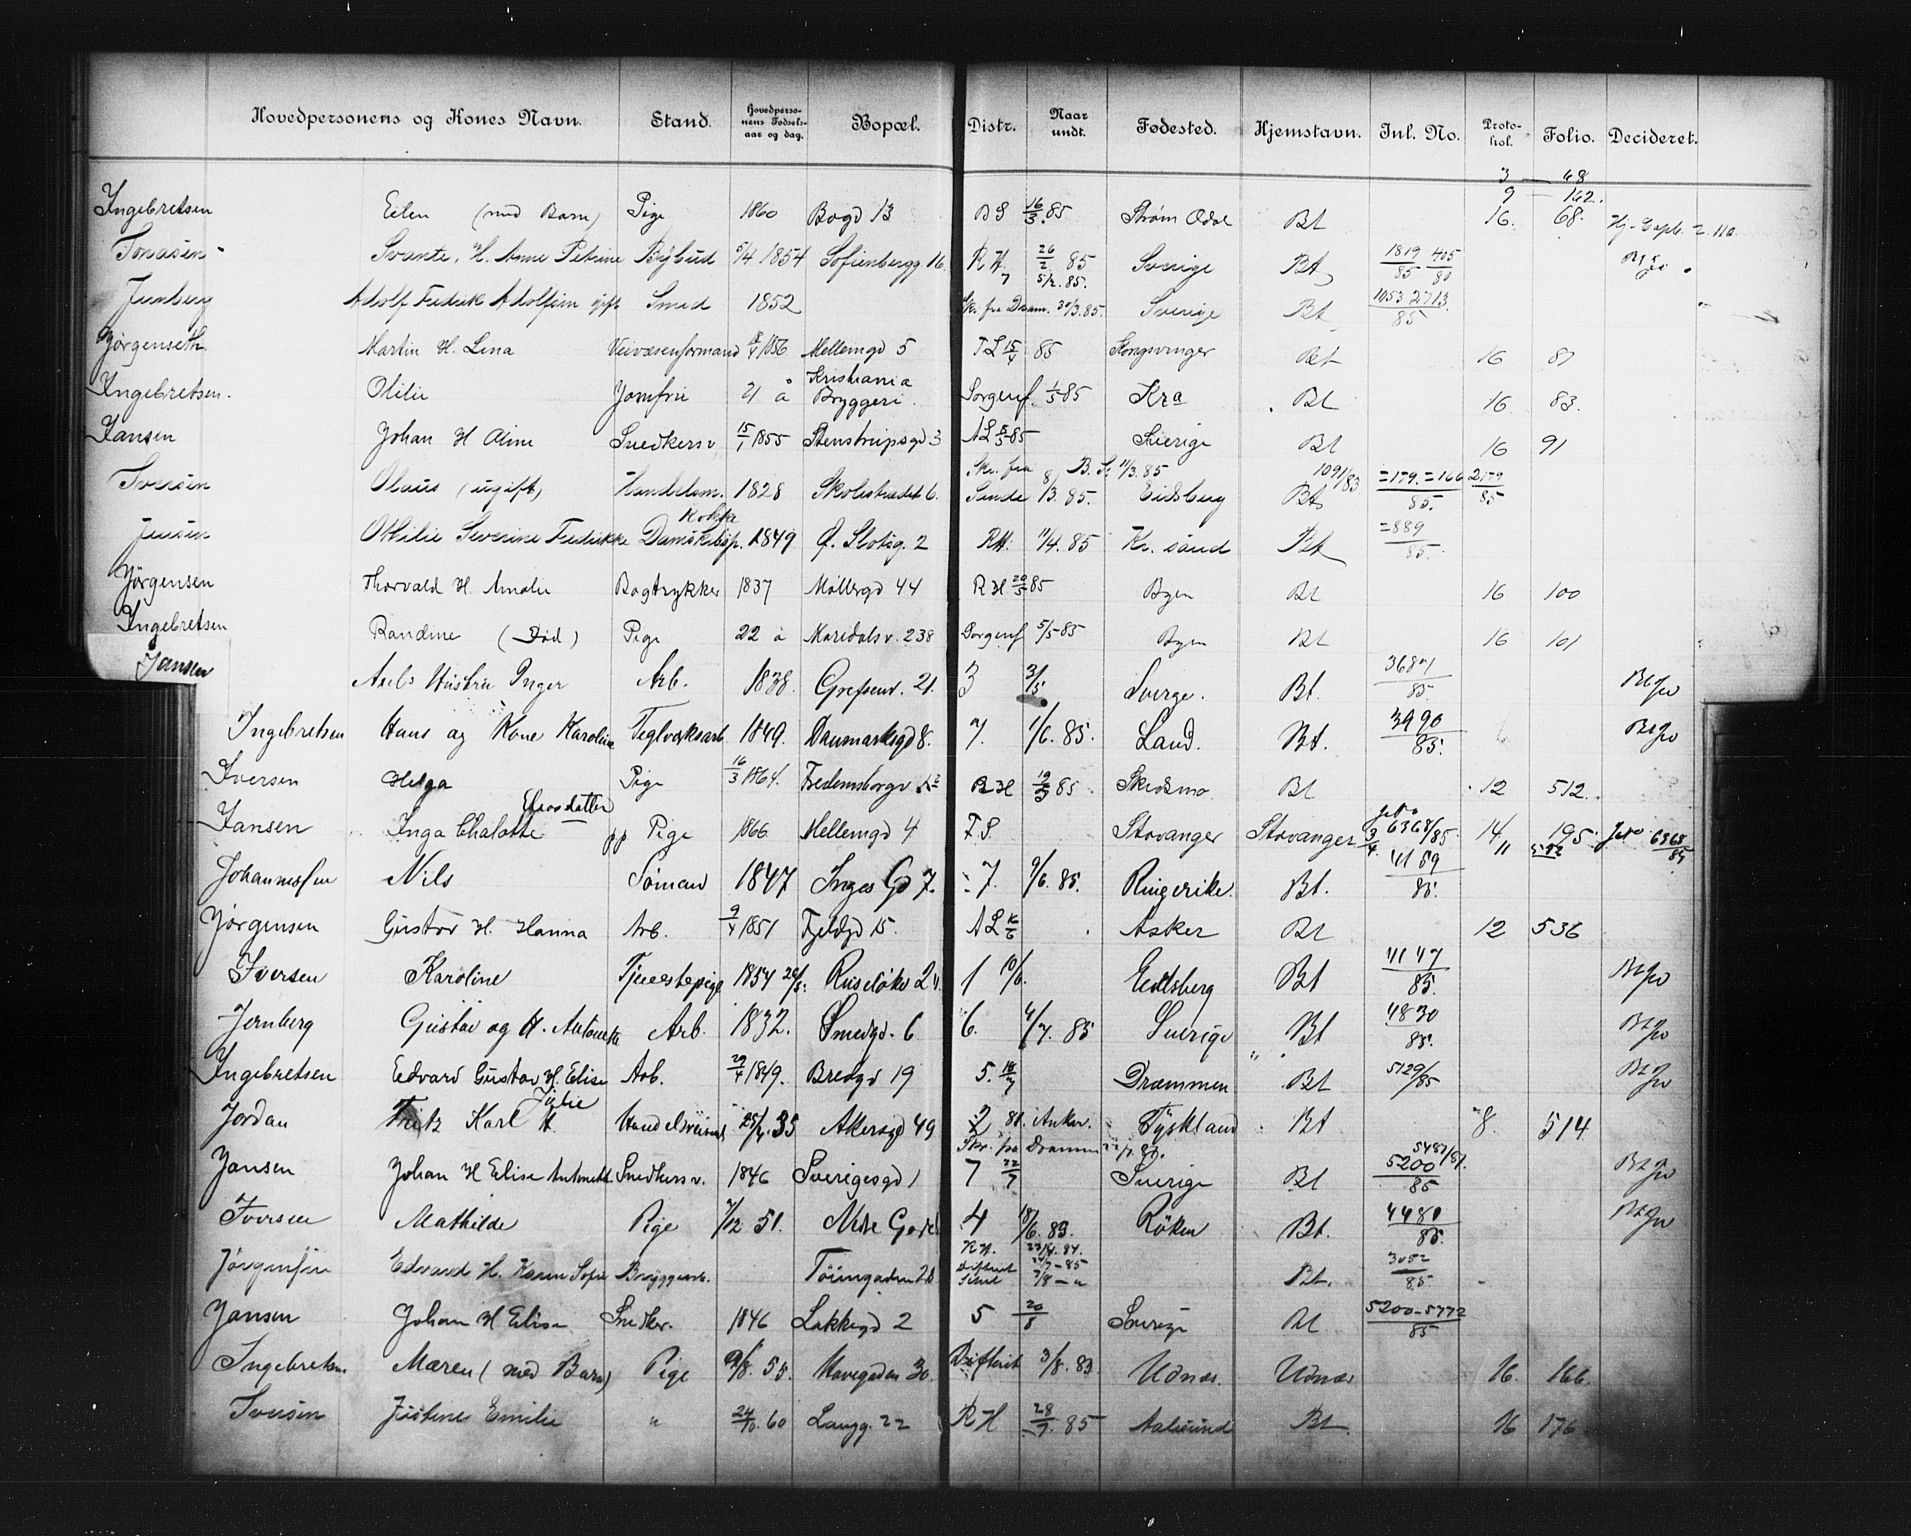 Hovedpersonens og Kones Navn. Stand. Hovedpersonens Fødselsaar og dag. Bopæl. Distr. Naar undt. Fødested. Hjemstavn. Inl. No. Protokol. Folio. Decideret.
3 — 68
9 — 162.
Ingebretsen Elen (med Barn) Pige 1860 Bogd 13 BS 16/3.85 Strøm Odal Bt 16. 68.
Jonasen Svante, H. Anne Petrine Bÿbud 5/4 1854 Sofienbergg 16 RH. 26/2 85 Sverige Bt 1819/85 405/80
7 5/2.85.
Adolf Fredrik Adolfsen gift Smed 1852 Skr. fra Dram. 30/3.85. Sverige Bt 1053 2713/85
Jørgenseth Martin H. Lina Veivæsenformand 8/4 1856 Mellemgd 5 TL 15/4 85 Kongsvinger Bet 16 81
Ingebretsen. Otilie Jomfru 21 å Kristiania Bryggeri. Sorgenf. 1/5 85 Kra Bt 16 83.
Jansen Johan H Aline Snedkersv 15/1 1855 Stenstrupsgd 3 AL 8/5 85 Sverige Bt 16 91
Skr. fra B.S. 11/3.85 1091/83
Iversen Olaus (ugift) Handelsm. 1828 Skolestrædet 6. Sinde 8/13.85. Eidsberg Bt =179.=166/85. 2179/85
Kokka
Jensen Othilie Severine Fredrikke Dampskibsp. 1849 Ø. Slotsg. 2 RH. 11/4.85 Kr. sand Bt =889/85.
Jørgensen Thorvald H Amalie Bogtrykker 1837 Møllergd 44 RH 20/5 85 Byen Bt 16 100
Ingebretsen Randine (Død) Pige 22 å Maridalsv. 238 Sorgenf 5/5 85 Byen Bt 16 101
Jansen Axels Hustru Inger Arb. 1838. Grefsenv. 21. 3 3/5 Sverge. Bt. 3687/85
Ingebretsen Hans og Kone Karoline Teglværksarb 1849. Danmarksgd 8. 7. 1/6.85. Land. Bt. 3990/85.
Iversen Helga Pige 16/3 1864. Fredensborgv RH 19/3 85 Skedsmo Bt 12 512.
Jansen Inga Chalotte Pige 1866 Mellemgd 4 F.S. Stavanger Stavanger 3/4. 6368/85 14 195. 6368/85
Johannessen Nils Sømand 1847 Inges Gd 7. 7. 9/6.85. Ringerike Bt. 4159/85.
Jørgensen Gustav H. Hanna Arb. 9/4 1851 Fjeldgd 15. AL 16/6 Asker Bt 12 536
Iversen Karoline Tjenestepige 1854 Ruseløkv 1 10/6. Eidsberg Bt 4147/85.
Jernberg Gustav og H. Antonette Arb. 1832. Smedgd. 6 6. 4/7.85 Sverige Bt 4830/85.
Ingebretsen Edvard Gustav H. Elise Arb. 29/4 1849. Bredgd 19 5. 18/7 Drammen Bt 5129/85
Julie
Jordan Fritz Karl H Akersgd 49 2 Anker. Tÿskland Bt 8. 514.
Skr. fra Drammen
Jansen Johan H Elise Antonette Snedkersv. 1846 Sverigesgd 1 7 22/7 Sverige Bt 5200/85
Iversen Mathilde Pige 7/12 51. 4 18/6.85. Røken Bt. 4480/85.
RH. 23/4.84.
Jørgensen Edvard H. Karen Sofie Bryggearb. Tøiengaden Bt. 3052/85.
Jansen Johan H Elise Snedker. 1846 Lakkegd 2 5 20/8 Sverige Bt 5200-5772/85
Ingebretsen Maren (med Barn) Pige 9/8. 55. Havegaden 30. Difterit 3/8.83. Udnæs. Udnæs 16. 166.
Iversen Justine Emilie " 24/10. 60 Langg. 22 RH 28/7.85 Aalesund Bt. 16 176